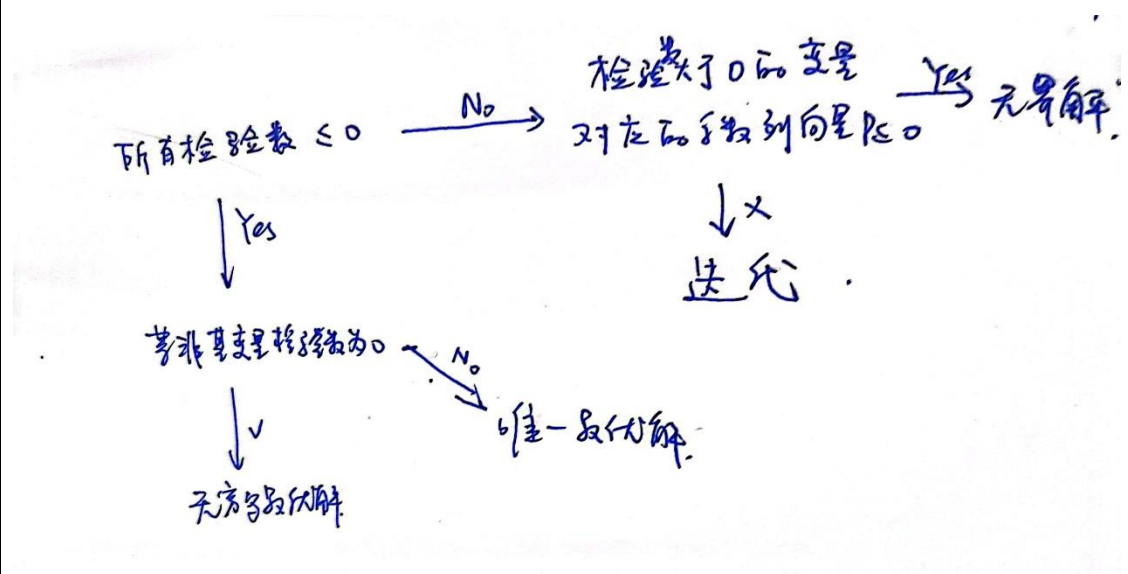 所有检验数 ≤ 0
No
检验数大于0的变量
对应的系数列向量P≤0
Yes
无界解.
Yes
×
迭代.
某非基变量检验数为0
No
唯一最优解.
√
无穷多最优解.